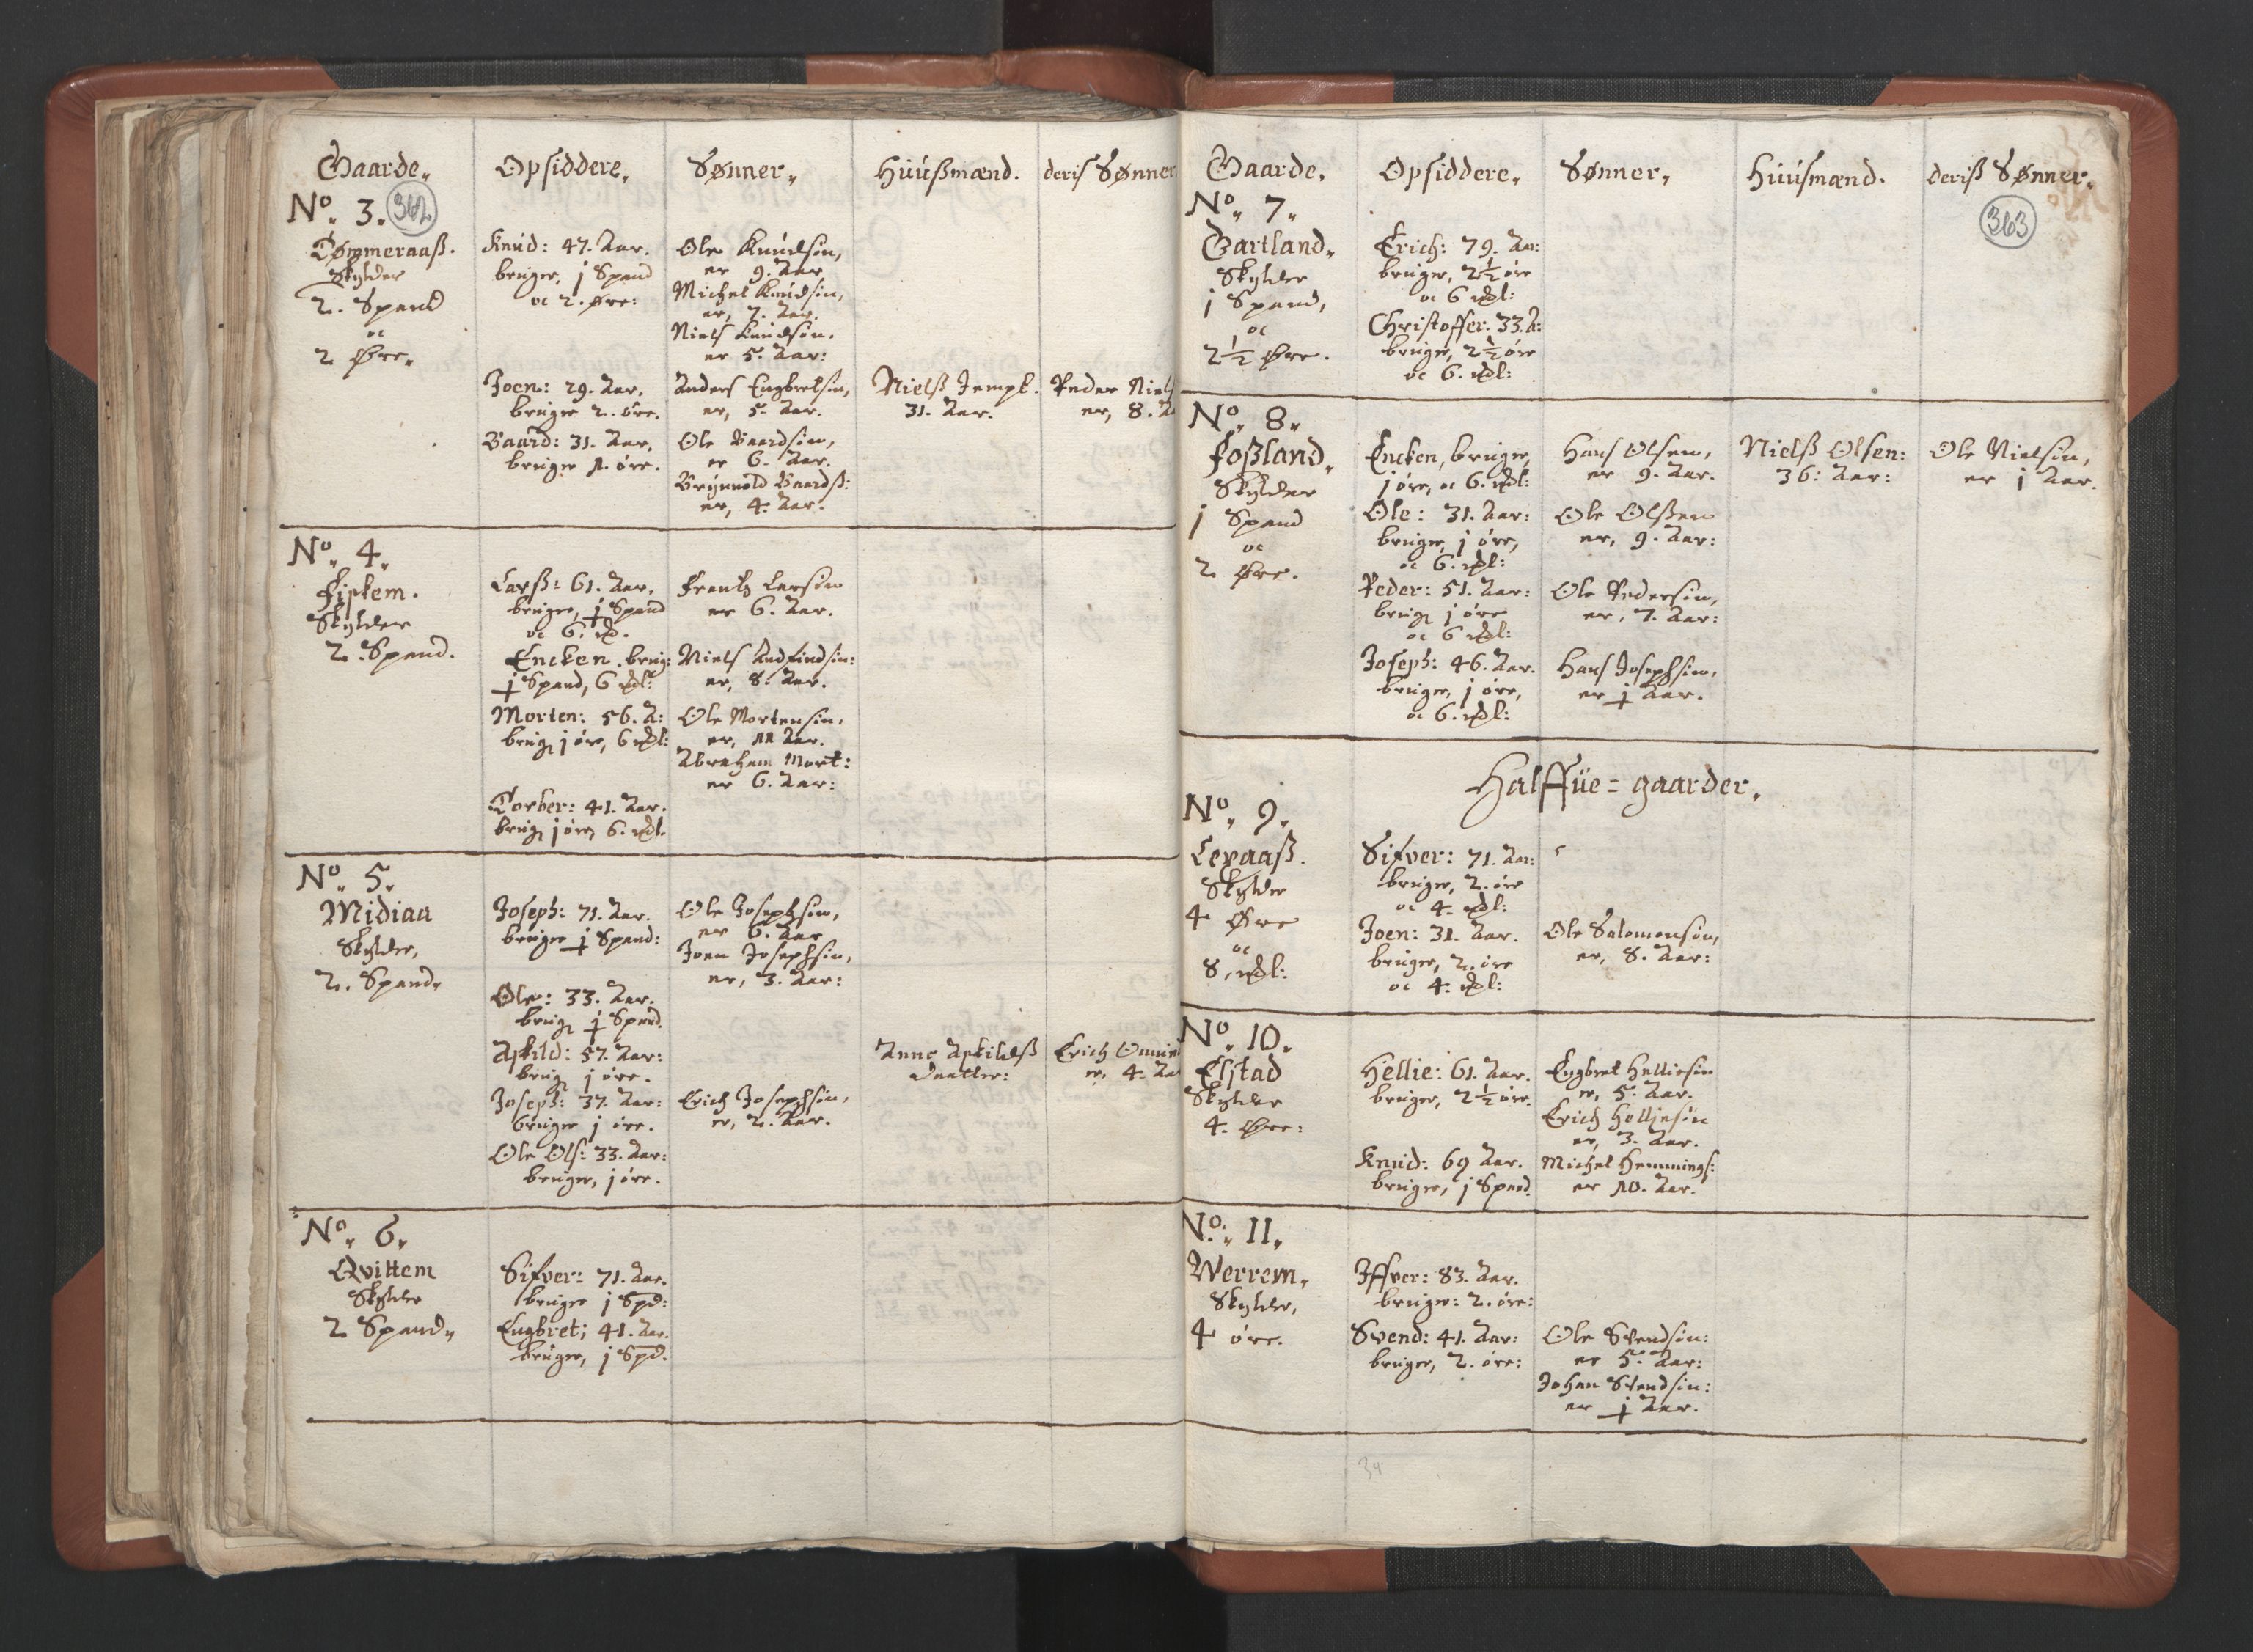 Gaarde. Opsiddere. Sønner. Huußmænd. deris Sønner
No. 3. 362
Tømmeraaß.
Skylder
2. Spand
oc
2 Øre.
Knud: 47. Aar.
bruger, j Spand
oc 2. Øre:
Ole Knudsøn,
er 9. Aar
Michel Knudsøn,
er, 7. Aar.
Niels Knudsøn.
er 5. Aar:
Joen: 29. Aar.
bruger 2. øre.
Anders Engbretsøn,
er, 5. Aar.
Nielß Jempt.
31. Aar.
Peder Niels
er, 8. A
Baard: 31. Aar.
bruger 1. øre.
Ole Baardsøn,
er 6. Aar.
Brynnild Baardß:
er, 4. Aar.
No. 4.
Fiskem.
Skylder
2. Spand.
Larß: 61. Aar.
bruger, j Spand
oc 6. mß.
Frantz Larsøn
er 6. Aar.
Encken. brug:
j Spand, 6 mßl:
Niels Andfindsøn:
er, 8. Aar.
Morten: 56. A:
brug j øre, 6 mßl:
Ole Mortensøn.
er, 11 Aar.
Abraham Mort:
er 6. Aar:
Torber: 41. Aar.
brug j øre 6. mßl.
No. 5.
Midiaa
Skylder,
2. Spand.
Joseph: 71. Aar.
bruger j Spand:
Ole Josephsøn,
er 6. Aar
Joen Josephsøn,
er, 3. Aar:
Ole: 33. Aar.
brug j Spand.
Askild: 57. Aar:
brug j øre.
Anne Askildß
daatter:
Erich
er, 4. Aa
Joseph: 37. Aar:
bruger j øre.
Erich Josephsøn,
er, 2. Aar.
Ole Ols: 33. Aar:
bruger, j øre.
No. 6.
Qvittem
Skylder
2 Spand.
Sifver: 71. Aar.
bruger j Spd:
Engbret; 41. Aar.
bruger, j Spd.
Gaarde. Opsiddere. Sønner. Huusmænd. deriß Sønner.
363
No. 7.
Gartland.
Skylder
j Spand,
oc
2½ Øre.
Erich: 79. Aar:
bruger, 2½ øre
oc 6 mßl:
Christoffer: 33. A:
bruger, 2½ øre
oc 6. mßl:
No. 8.
Foßland.
Skylder
j Spand
oc
2 Øre.
Encken, bruger,
j øre, oc 6. mßl:
Hans Olsen,
er 9. Aar.
Nielß Olsen:
36: Aar:
Ole Nielsøn,
er j Aar.
Ole: 31. Aar:
bruger, j øre,
oc 6. mßl:
Ole Olßen
er, 9. Aar:
Peder: 51. Aar:
brug j øre
oc 6 mßl:
Ole Pedersøn,
er, 7. Aar:
Joseph: 46. Aar.
bruger, j øre,
oc 6. mßl:
Hans Josephsøn,
er j Aar.
Halffüe=gaarder.
No. 9.
Lexaaß.
Skylder
4 Øre
oc
8. mßl:
Sifver: 71. Aar:
bruger, 2. øre
oc 4. mßl:
Joen: 31. Aar.
bruger, 2. øre
oc 4. mßl:
Ole Salomonsøn,
er, 8. Aar:
No. 10.
Elstad
Skylder
4. Øre:
Hellie: 61. Aar.
bruger, 2½ øre.
Engbret Helliesøn
er, 5. Aar.
Erich Helliesøn
er, 3. Aar.
Knud: 69 Aar.
bruger, j Spand.
Michel Hemmings:
er 10. Aar.
No. 11.
Werrem.
Skylder,
4 øre.
Iffver: 83. Aar.
bruger: 2. øre:
Svend: 41. Aar:
bruger, 2. øre:
Ole Svendsøn:
er 5. Aar:
Johan Svendsøn:
er j Aar.